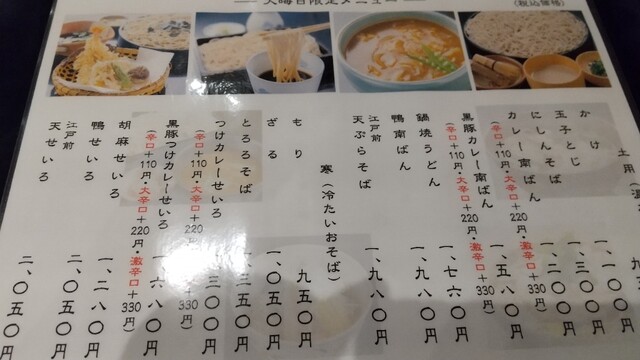 大晦日限定メニュー
(税込価格)
かけ
玉子とじ
一、一〇〇円
にしんそば
一、三〇〇円
カレー南ばん
一、二〇〇円
(辛口+110円・大辛口+220円・激辛口+330円)
黒豚カレー南ばん
一、五八〇円
(辛口+110円・大辛口+220円・激辛口+330円)
鍋焼うどん
一、七六〇円
鴨南ばん
一、九八〇円
江戸前
天ぷらそば
一、九八〇円
寒（冷たいおそば）
もり
九五〇円
ざる
一、〇五〇円
とろろそば
つけカレーせいろ
一、三〇〇円
(辛口+110円・大辛口+220円・激辛口+330円)
黒豚つけカレーせいろ
一、六八〇円
(辛口+110円・大辛口+220円・激辛口+330円)
胡麻せいろ
一、二八〇円
鴨せいろ
二、〇五〇円
江戸前
天せいろ
二、〇五〇円